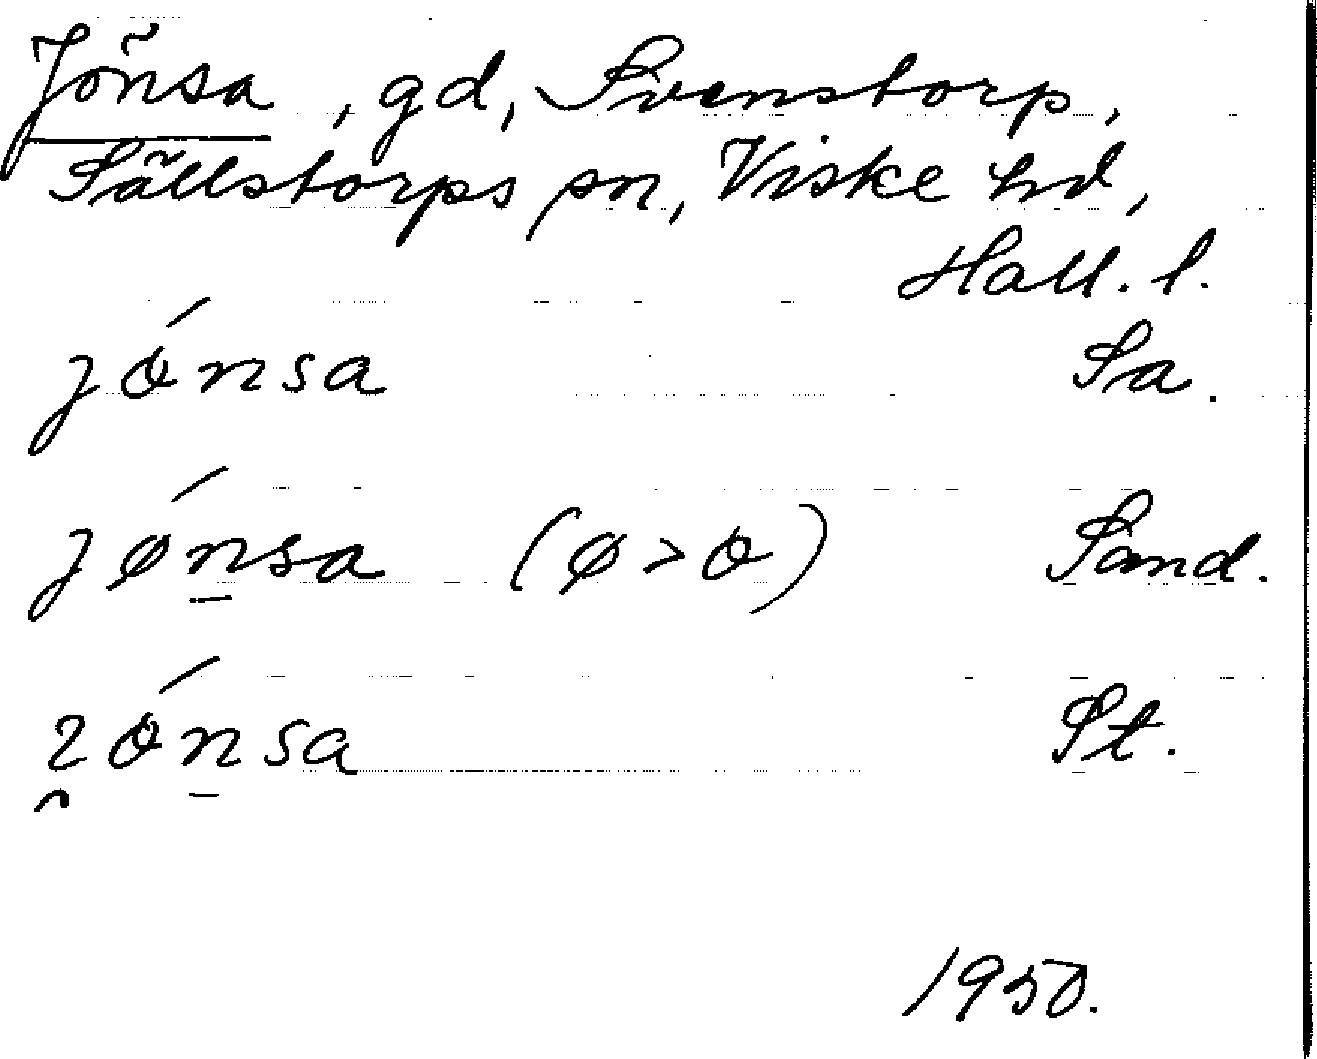 Jönsa, gd, Svenstorp,
Sällstorps sn, Viske hd,
Hall. l.
jǿnsa Sa.
jǿnsa (ø > ꝋ) Sand.
ꝛǿnsa St.
1950.